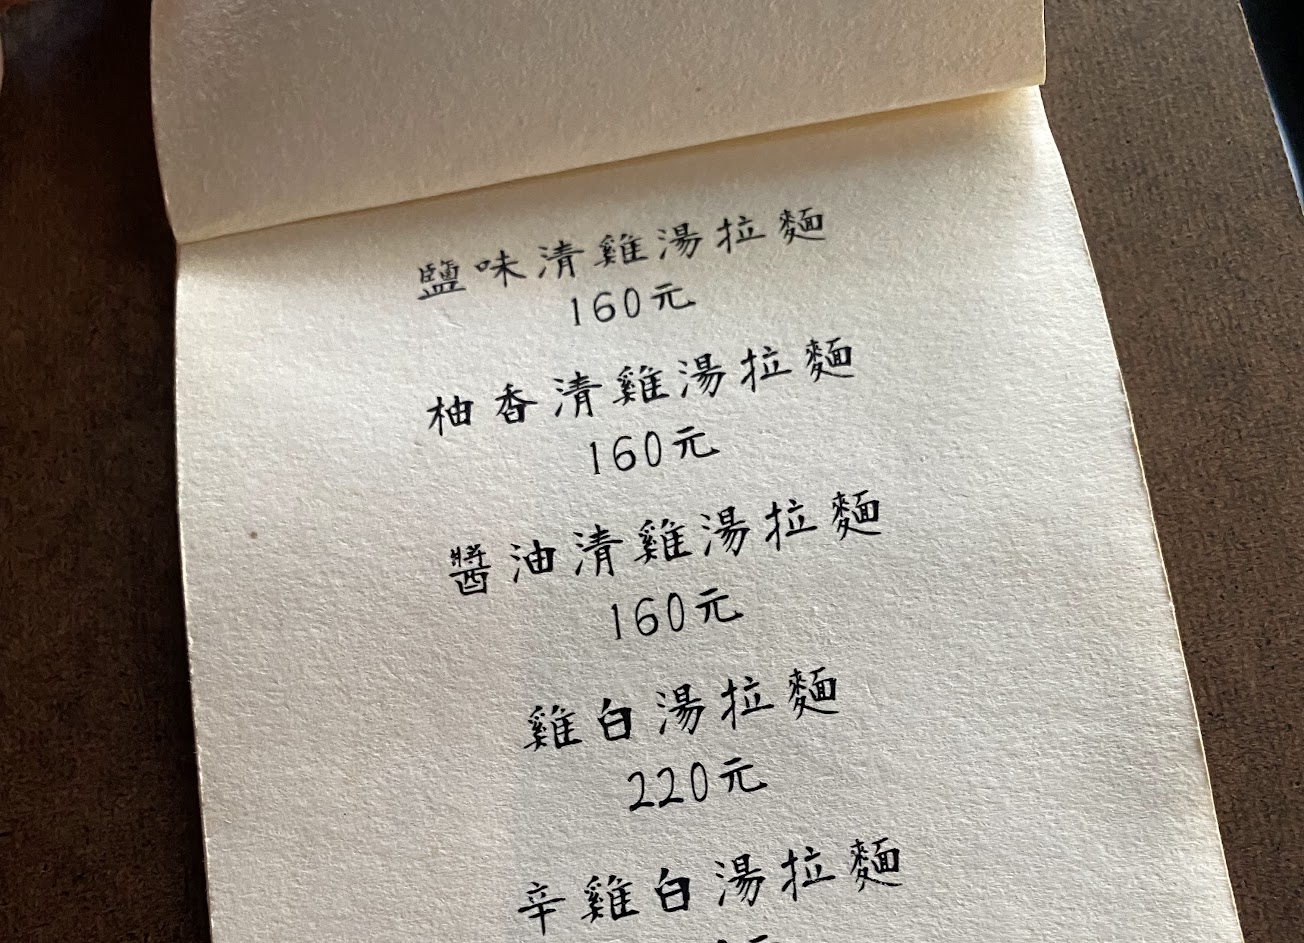 鹽味清雞湯拉麵
160元
柚香清雞湯拉麵
160元
醬油清雞湯拉麵
160元
雞白湯拉麵
220元
辛雞白湯拉麵
元